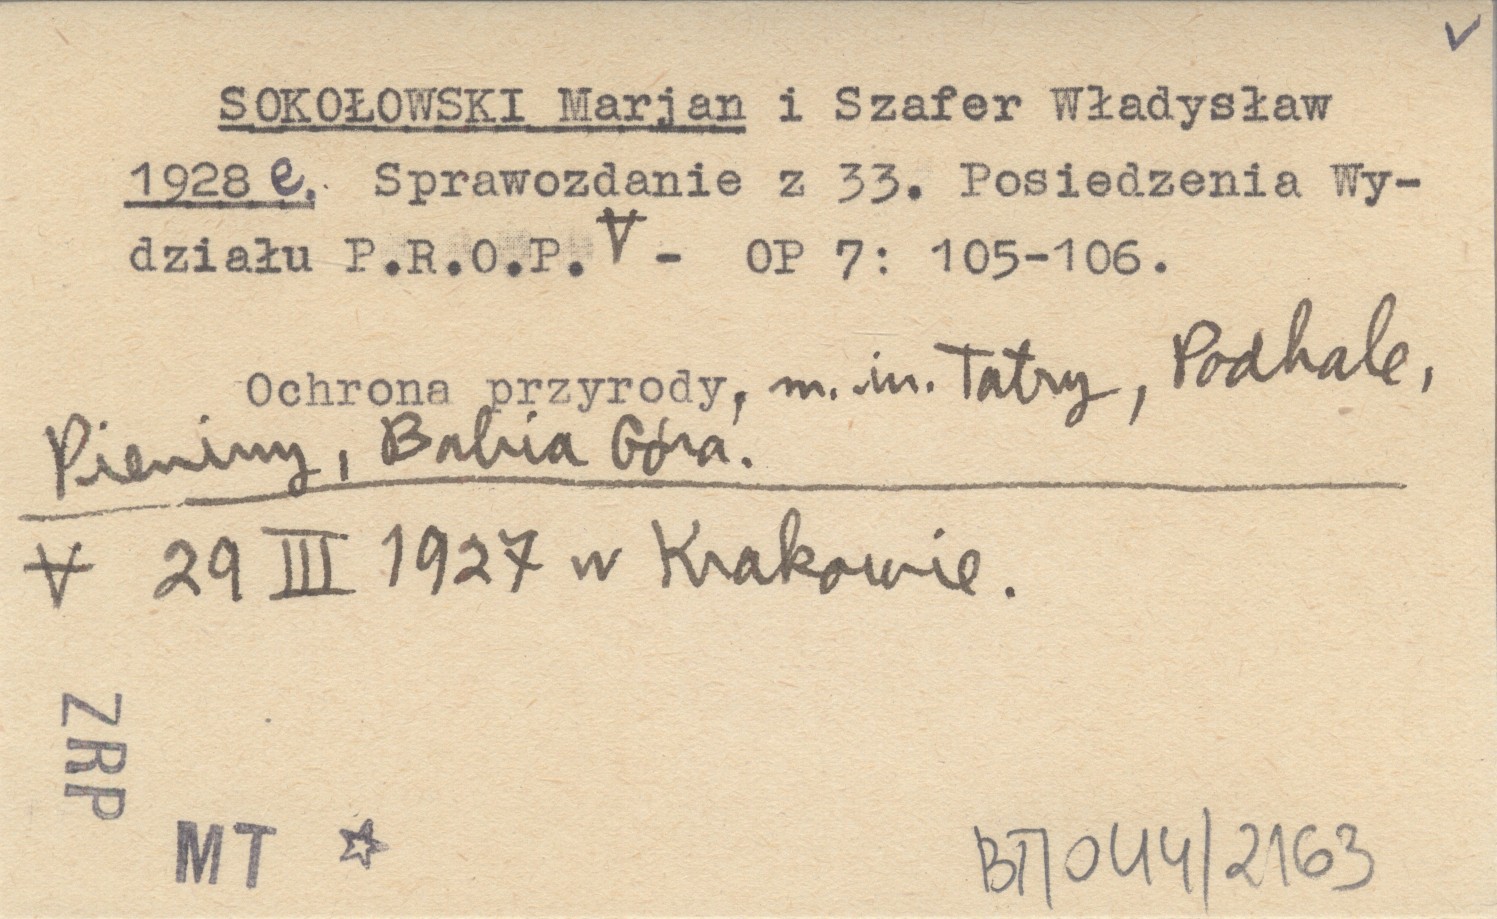 SOKOŁOWSKI Marjan i Szafer Władysław
1928 e. Sprawozdanie z 33. Posiedzenia Wy-
działu P.R.O.P. ∀ - OP 7: 105-106.
Ochrona przyrody, m. in. Tatry, Podhale,
Pieniny, Babia Góra.
∀ 29 III 1927 w Krakowie.
ZRP
MT
BT/044/2163